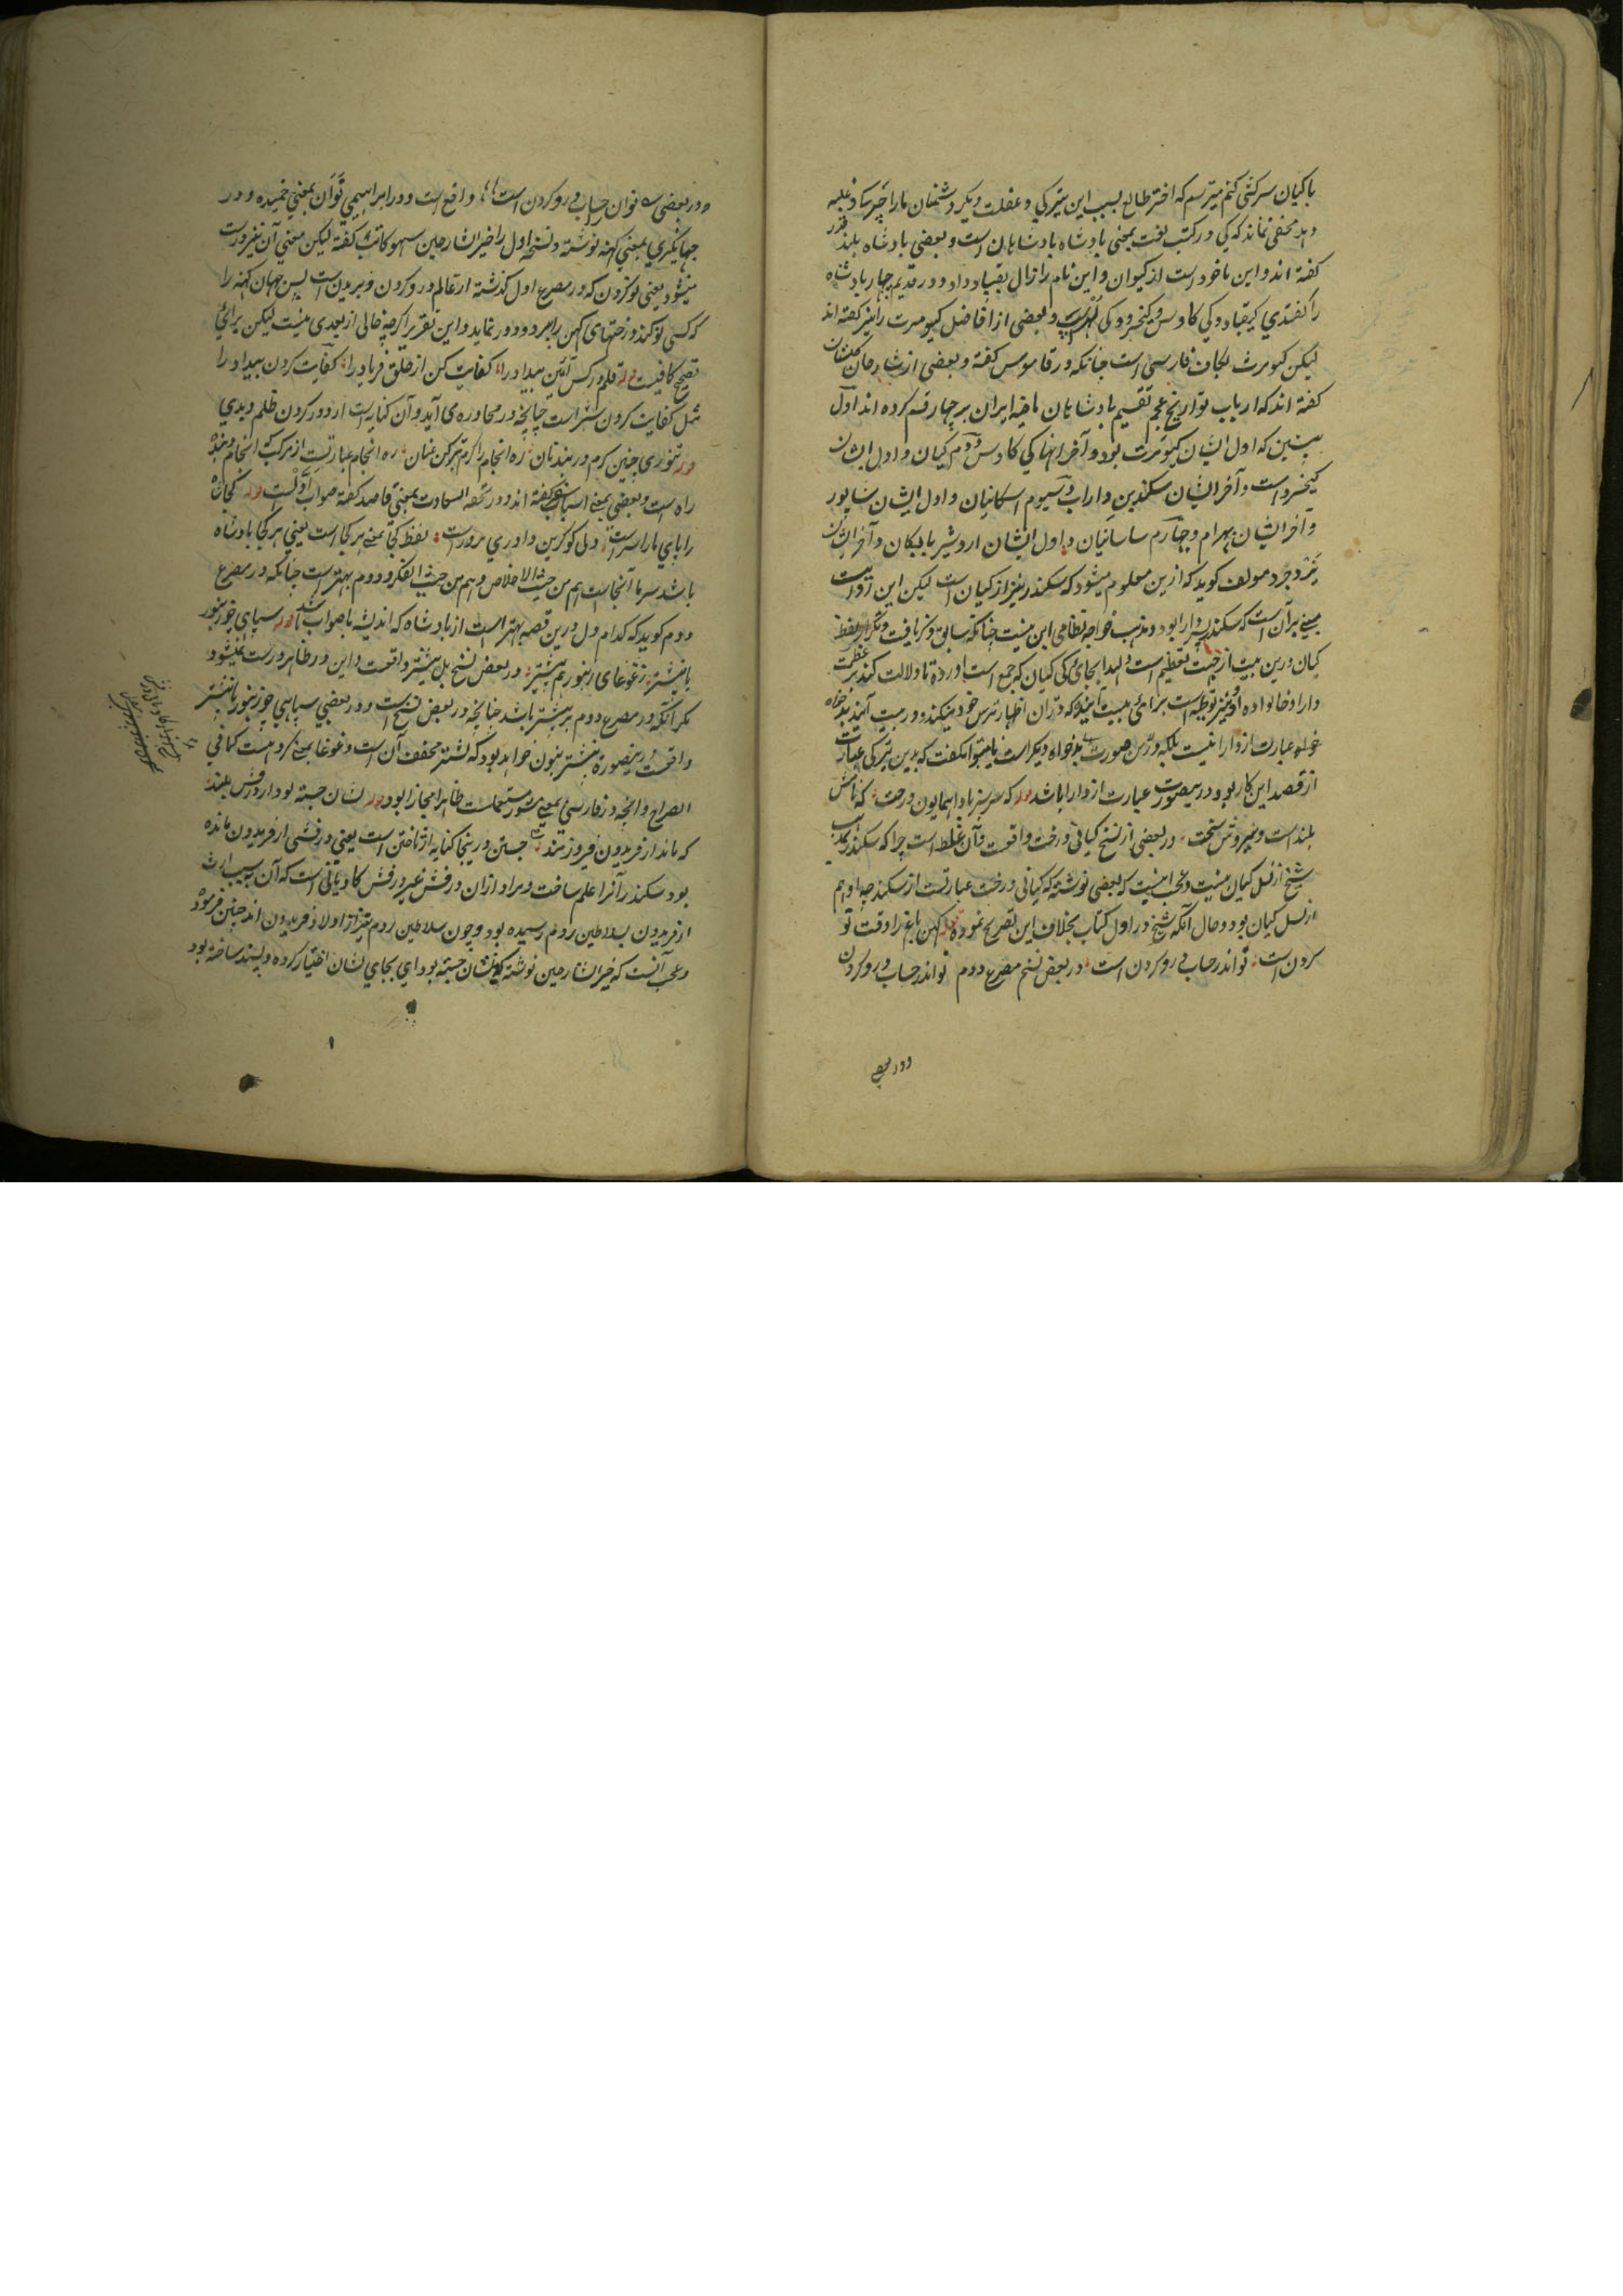 با کیان سرکشی کنم میترسم که اختر طالع بسبب این تیرگی و غفلت دیگر دشمنان ما را چیرساز و غلبه
دهد مخفی نماند که کی در کتب لغت بمعنی پادشاه پادشاهان است و بعضی پادشاه بلند قدر
گفته اند و این ماخوذ است از کیوان و این نام را زال بقباد داد و در قدیم چهار پادشاه
را گفتندی کیقباد و کی کاوس و کیخسرو و کی لهراسپ و بعضی از افاضل کیومرث را نیز گفته اند
لیکن کیومرث بکاف فارسی است چنانکه در قاموس گفته و بعضی از شارحان
گفته اند که ارباب تواریخ عجم تقسیم پادشاهان ماضیه ایران بر چهار قسم کرده اند اول
پیشین که اول ایشان کیومرث بود و آخر انها کی کاوس و دوم کیان و اول ایشان
کیخسرو است و آخر ایشان سکندر بن داراب و سیوم اسکانیان و اول ایشان شاپور
و آخر ایشان بهرام و چهارم ساسانیان و اول ایشان اردشیر بابکان و آخر ایشان
یزدجرد مولف گوید که ازین معلوم میشود که سکندر نیز از کیان است لیکن این روایت
مبنی بر آن است که سکندر پسر دارا بود و مذهب خواجه نظامی این نیست چنانکه سابق ذکر یافت و تکرار لفظ
کیان درین بیت از جهت تعظیم است و لهذا بجای کی کیان که جمع است آورده تا دلالت کند بر عظمت
دارا و خانواده او و نیز توطیه است برای بیت آینده که در آن اظهار ترس خود میکند و در بیت آینده بدخواه
خواه عبارت از دارا نیست بلکه درین صورت بدخواه دیگر است یا میتوان گفت که بدین تیرگی عبارت
از قصد این کار بود و درینصورت عبارت از دارا باشد قوله که سرسبز باد اهمایون درخت که شاخش
بلند است و نیروش سخت در بعضی از نسخ کیانی درخت واقعست و آن غلط است چرا که سکندر بمذهب
شیخ از نسل کیان نیست و عجب اینست که بعضی نوشته که کیانی درخت عبارتست از سکندر چه او هم
از نسل کیان بود و حال آنکه شیخ در اول کتاب بخلاف این تصریح نموده قوله کهن باغ را وقت نو
کردن است نواندر حساب درو کردن است در بعض نسخ مصرع دوم نواندر حساب درو کردن
و در بعضی
و در بعضی نوان حساب درو کردن است واقع است و در ابراهیمی نوان بمعنی خمیده و در
جهانگیری بمعنی کهنه نوشته و نسخه اول را خیر الشارحین سهو کاتب گفته لیکن معنی آن نیز درست
میشود یعنی نو کردن که در مصرع اول گذشته از عالم درو کردن و بریدن است پس جهان کهنه را
که کسی نو کند درختهای کهن را ببرد و دور نماید و این تقریر اگرچه خالی از بعدی نیست لیکن برای
تصحیح کافیست قوله قلم درکش آئین بیداد را کفایت کن از خلق فریاد را کفایت کردن بیداد را
مثل کفایت کردن شر است چنانچه در محاوره می آید و آن کنایه است از دور کردن ظلم و بدی
قوله تنوری چنین گرم در بند نان ره انجام را گرم تر کن عنان ره انجام عبارتست از مرکب که انجام دهنده
راه است و بعضی بمعنی اسباب سفر گفته اند و در تحفة السعادت بمعنی قاصد گفته صواب اولست قوله کجا شاه
را پای ما را سراست دلی کو کزین داوری مرورست لفظ کجا بمعنی هر کجا است یعنی هر کجا پادشاه
باشد سر ما آنجا است هم من حیث الاخلاص و هم من حیث الفکر و دوم بهتر است چنانکه در مصرع
دوم گوید که کدام دل درین قضیه بهتر است از پادشاه که اندیشه ما صواب باشد قوله سپاهی چو زنبور
با نیشتر ز غوغای زنبور هم بیشتر در بعض نسخ پل بیشتر واقعست و این در ظاهر درست نمیشود
مگر آنکه در مصرع دوم بر بیشتر باشد چنانچه در بعض نسخ است و در بعضی سپاهی چو زنبور با نیشتر
واقعست درینصورت نیشتر بنون خواهد بود که نشتر مخفف آن است و غوغا بمعنی گروهیست کما فی
الصراح و انچه در فارسی بمعنی شور مستعملست ظاهرا مجازا بود قوله نشان جسته بود از درفش بلند
که ماند از فریدون فیروزمند جستن درینجا کنایه از تاختن است یعنی درفشی از فریدون مانده
بود سکندر آنرا علم ساخت و مراد ازان درفش غیر درفش کاویانی است که آن بسبب ارث
از فریدون بسلاطین روم رسیده بود و چون سلاطین روم نیز از اولاد فریدون اند چنین فرمود
و عجب آنست که خیر الشارحین نوشته که نشان جسته بود ای بجای نشان اختیار کرده و پسند ساخته بود